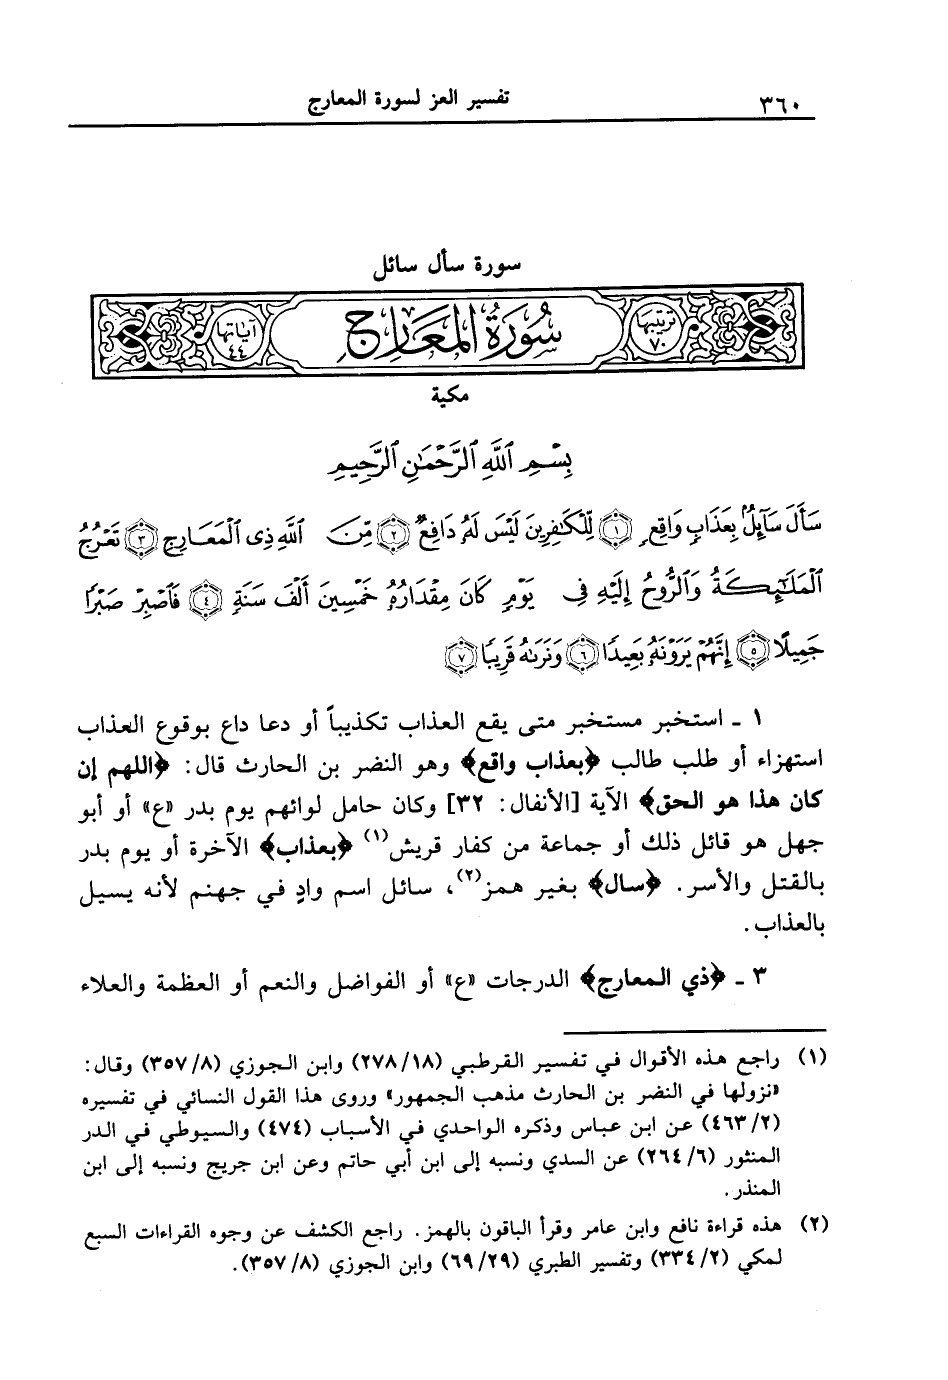 ٣٦٠ تفسير العز لسورة المعارج
سورة سأل سائل
ترتيبها ٧٠ سُورَةُ المَعَارِجِ آياتها ٤٤
مكية
بِسْمِ ٱللَّهِ ٱلرَّحْمَٰنِ ٱلرَّحِيمِ
سَأَلَ سَآئِلٌۢ بِعَذَابٍ وَاقِعٍ ﴿١﴾ لِّلْكَٰفِرِينَ لَيْسَ لَهُۥ دَافِعٌ ﴿٢﴾ مِّنَ ٱللَّهِ ذِى ٱلْمَعَارِجِ ﴿٣﴾ تَعْرُجُ
ٱلْمَلَٰٓئِكَةُ وَٱلرُّوحُ إِلَيْهِ فِى يَوْمٍ كَانَ مِقْدَارُهُۥ خَمْسِينَ أَلْفَ سَنَةٍ ﴿٤﴾ فَٱصْبِرْ صَبْرًا
جَمِيلًا ﴿٥﴾ إِنَّهُمْ يَرَوْنَهُۥ بَعِيدًا ﴿٦﴾ وَنَرَىٰهُ قَرِيبًا ﴿٧﴾
١ ـ استخبر مستخبر متى يقع العذاب تكذيباً أو دعا داع بوقوع العذاب
استهزاء أو طلب طالب ﴿بعذاب واقع﴾ وهو النضر بن الحارث قال: ﴿اللهم إن
كان هذا هو الحق﴾ الآية [الأنفال: ٣٢] وكان حامل لوائهم يوم بدر «ع» أو أبو
جهل هو قائل ذلك أو جماعة من كفار قريش(١) ﴿بعذاب﴾ الآخرة أو يوم بدر
بالقتل والأسر. ﴿سال﴾ بغير همز(٢)، سائل اسم وادٍ في جهنم لأنه يسيل
بالعذاب.
٣ ـ ﴿ذي المعارج﴾ الدرجات «ع» أو الفواضل والنعم أو العظمة والعلاء
(١) راجع هذه الأقوال في تفسير القرطبي (٢٧٨/١٨) وابن الجوزي (٣٥٧/٨) وقال:
«نزولها في النضر بن الحارث مذهب الجمهور» وروى هذا القول النسائي في تفسيره
(٤٦٣/٢) عن ابن عباس وذكره الواحدي في الأسباب (٤٧٤) والسيوطي في الدر
المنثور (٢٦٤/٦) عن السدي ونسبه إلى ابن أبي حاتم وعن ابن جريج ونسبه إلى ابن
المنذر.
(٢) هذه قراءة نافع وابن عامر وقرأ الباقون بالهمز. راجع الكشف عن وجوه القراءات السبع
لمكي (٣٣٤/٢) وتفسير الطبري (٦٩/٢٩) وابن الجوزي (٣٥٧/٨).